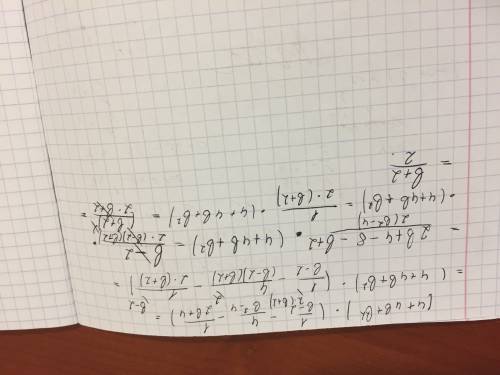 (4+4b+b²)·(1/(b-2) - 4/(b²-4) - 1/(2b+4)) =
= (4+4b+b²)·(1/(b-2) - 4/((b-2)(b+2)) - 1/(2·(b+2))) =
= (2b+4-8-b+2)/(2(b²-4)) · (4+4b+b²) = (b-2)/(2·(b-2)(b+2)) ·
·(4+4b+b²) = 1/(2·(b+2)) · (4+4b+b²) = (b+2)²/(2·b+2) =
= (b+2)/2.